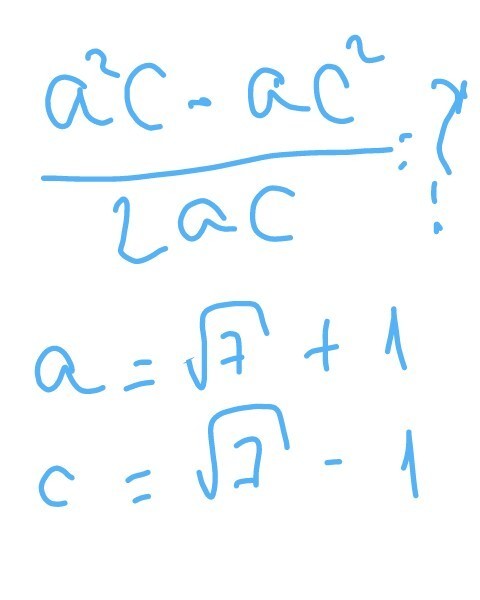 a²c - ac²
2ac
= ?
a = √7 + 1
c = √7 - 1